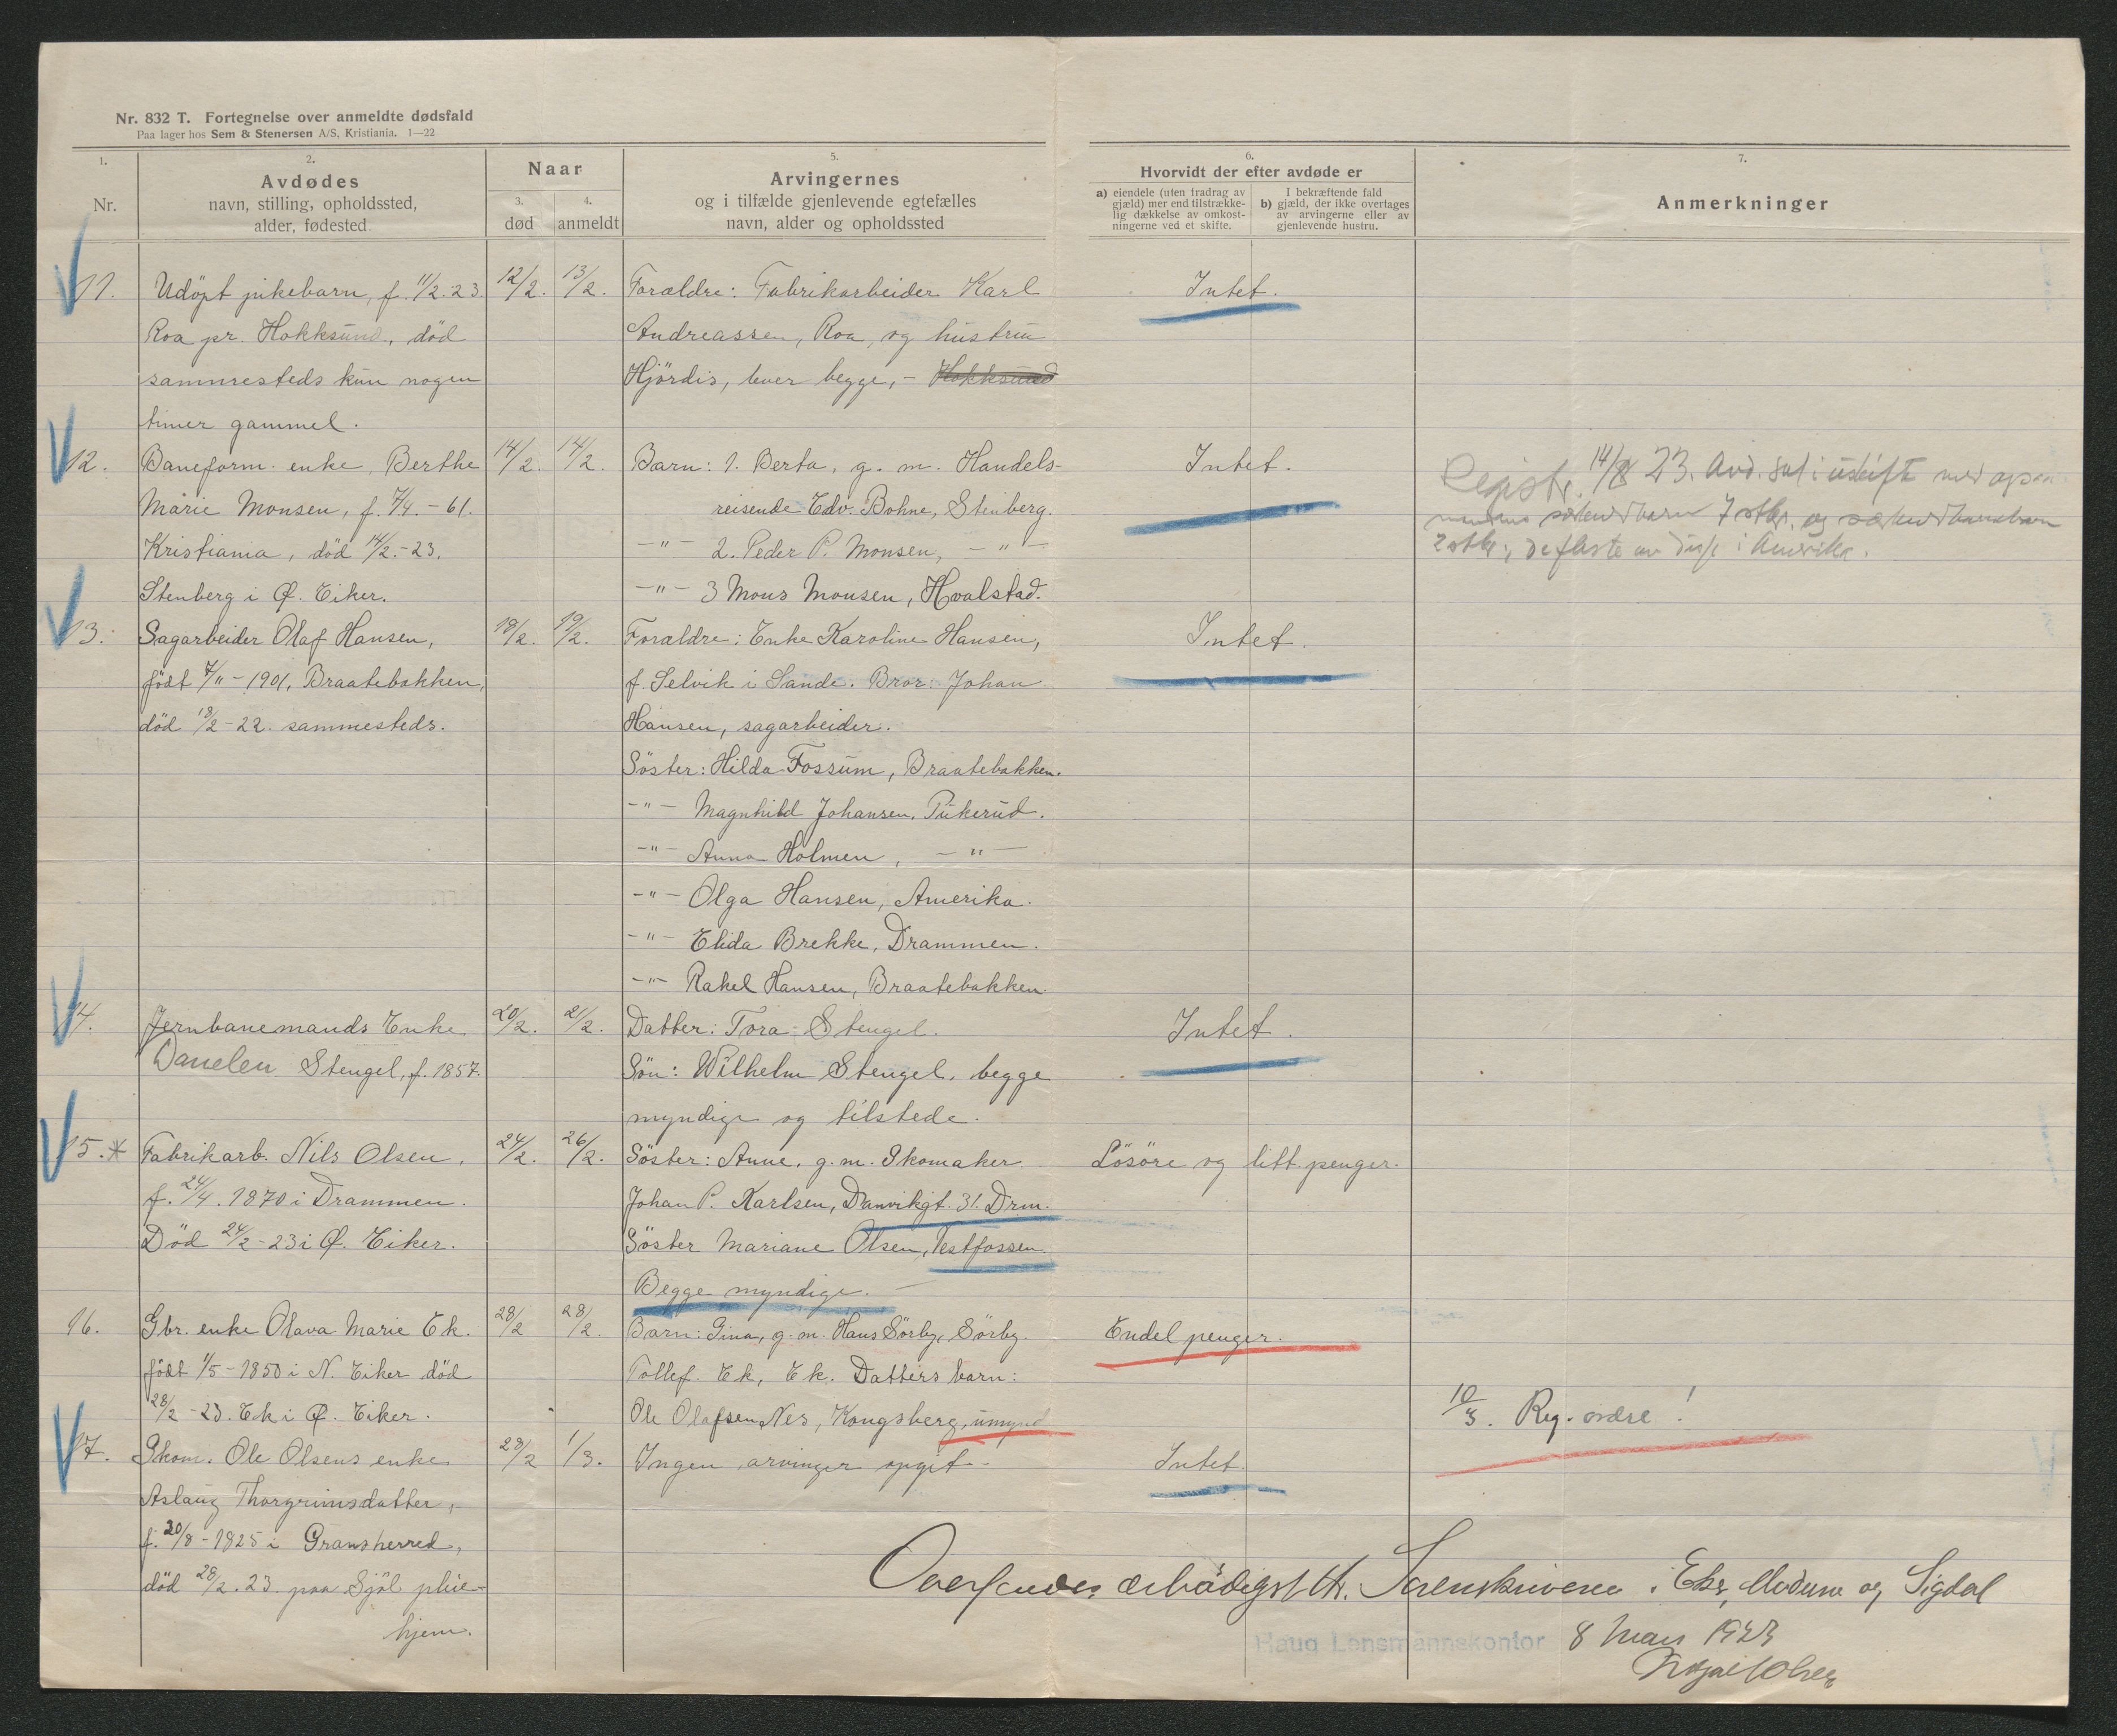 Nr. 832 T. Fortegnelse over anmeldte dødsfald
Paa lager hos Sem & Stenersen A/S, Kristiania. 1—22
1.
Nr.
2.
Avdødes
navn, stilling, opholdssted,
alder, fødested
Naar
3.
død
4.
anmeldt
5.
Arvingernes
og i tilfælde gjenlevende egtefælles
navn, alder og opholdssted
6.
Hvorvidt der efter avdøde er
a) eiendele (uten fradrag av
gjæld) mer end tilstrække-
lig dækkelse av omkost-
ningerne ved et skifte.
I bekræftende fald
b) gjæld, der ikke overtages
av arvingerne eller av
gjenlevende hustru.
7.
Anmerkninger
11. Udöpt pikebarn, f. 11/2.23. 12/2. 13/2. Forældre: Fabrikarbeider Karl Intet.
Roa pr. Hokksund, död Andreassen, Roa, og hustru
sammesteds kun nogen Hjördis, lever begge, - Hokksund
timer gammel.
12. Baneform. enke, Berthe 14/2. 14/2. Barn: 1. Berta, g. m. Handels- Intet.
Marie Monsen, f. 7/4.-61. reisende Edv. Bohne, Stenberg.
Kristiania, död 14/2.-23. -"- 2. Peder P. Monsen, -"-
Stenberg i Ø. Eiker. -"- 3 Mons Monsen, Hvalstad.
Registr. 14/8 23. Avd. sat i uskifte med
7 stkr. og
2 stkr., de fleste av disse i Amerika.
13. Sagarbeider Olaf Hansen, 18/2. 19/2. Forældre: Enke Karoline Hansen, Intet.
födt 7/11-1901, Braatebakken, f. Selvik i Sande. Bror: Johan
död 18/2-22. sammesteds. Hansen, sagarbeider.
Söster: Hilda Fossum, Braatebakken.
-"- Magnhild Johansen, Pukerud.
-"- Anna Holmen, -"-
-"- Olga Hansen, Amerika.
-"- Elida Brekke, Drammen.
-"- Rakel Hansen, Braatebakken.
14. Jernbanemands Enke 20/2. 21/2. Datter: Tora Stengel. Intet.
Danelen Stengel, f. 1857. Sön: Wilhelm Stengel, begge
myndige og tilstede.
15.* Fabrikarb. Nils Olsen, 24/2. 26/2. Söster: Anne, g. m. Skomaker Lösöre og litt penger.
f. 24/4. 1870 i Drammen. Johan P. Karlsen, Danvikgt. 31. Drm.
Död 24/2-23 i Ø. Eiker. Söster Mariane Olsen, Vestfossen.
Begge myndige. -
16. Gbr. enke Olava Marie Ek. 28/2 28/2. Barn: Gina, g. m. Hans Sörby, Sörby. Endel penger.
födt 1/5-1850 i N. Eiker död Tollef Ek, Ek. Datters barn:
28/2-23. Ek i Ø. Eiker. Ole Olafsen Nes, Kongsberg, umynd 10/3. Reg. ordre!
17. Skom. Ole Olsens enke 28/2 1/3. Ingen arvinger opgit. Intet.
Aslaug Thorgrimsdatter,
f. 20/8-1825 i Gransherred,
död 28/2.23. paa Sjöl pleie-
hjem.
Oversendes ærbödigst hr. Sorenskriveren i Eker, Modum og Sigdal
Haug Lensmannskontor 8 Mars 1923